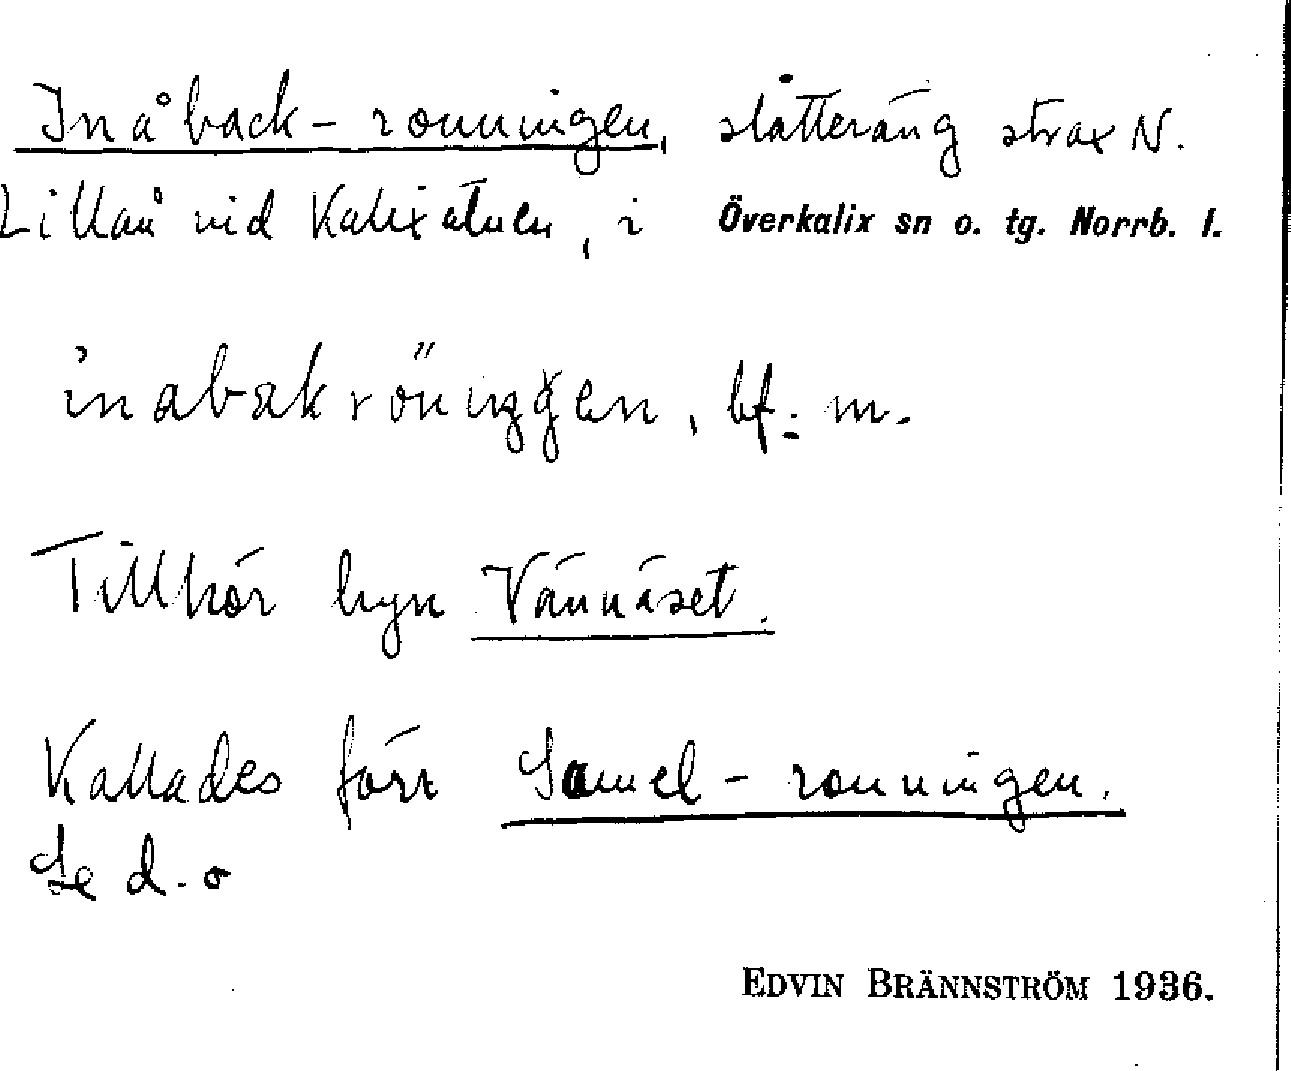 Inåback-ronningen, slåtteräng strax N.
Lillån vid Kalixälven, i Överkalix sn o. tg. Norrb. l.
inabakröninggen, bf. m.
Tillhör byn Vännäset.
Kallades förr Samel-ronningen.
Se d. o
EDVIN BRÄNNSTRÖM 1936.